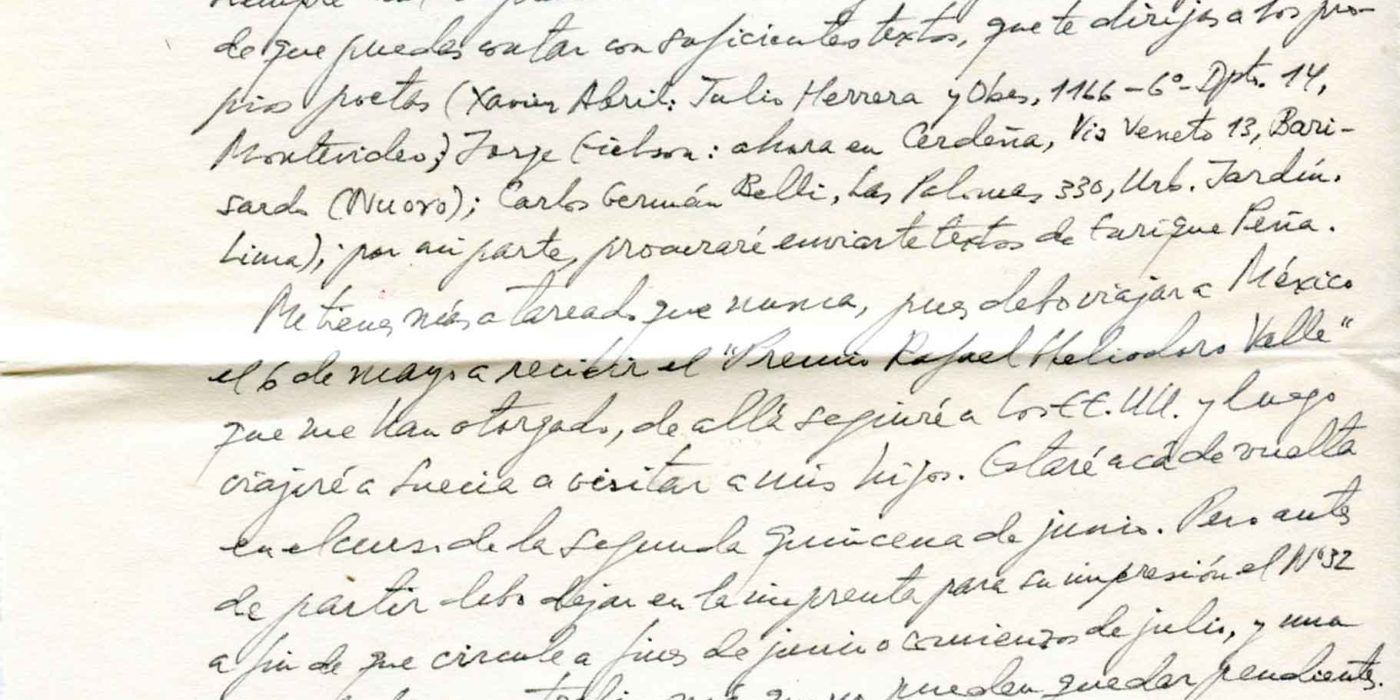 siempre
de que puedas contar con suficientes textos, que te dirijas a los pro-
pios poetas (Xavier Abril: Julio Herrera y Obes, 1166 - 6º - Dpto. 14,
Montevideo; Jorge Eielson: ahora en Cerdeña, Via Veneto 13, Bari-
sardo (Nuoro); Carlos Germán Belli, Las Palomas 330, Urb. Jardín.
Lima); por mi parte, procuraré enviarte textos de Enrique Peña.
Me tienes más atareado que nunca, pues debo viajar a México
el 6 de mayo a recibir el "Premio Rafael Heliodoro Valle"
que me han otorgado, de allá seguiré a los EE.UU. y luego
viajaré a Suecia a visitar a mis hijos. Estaré acá de vuelta
en el curso de la segunda quincena de junio. Pero antes
de partir debo dejar en la imprenta para su impresión el Nº 32
a fin de que circule a fines de junio o comienzos de julio, y una
que no pueden quedar pendientes.